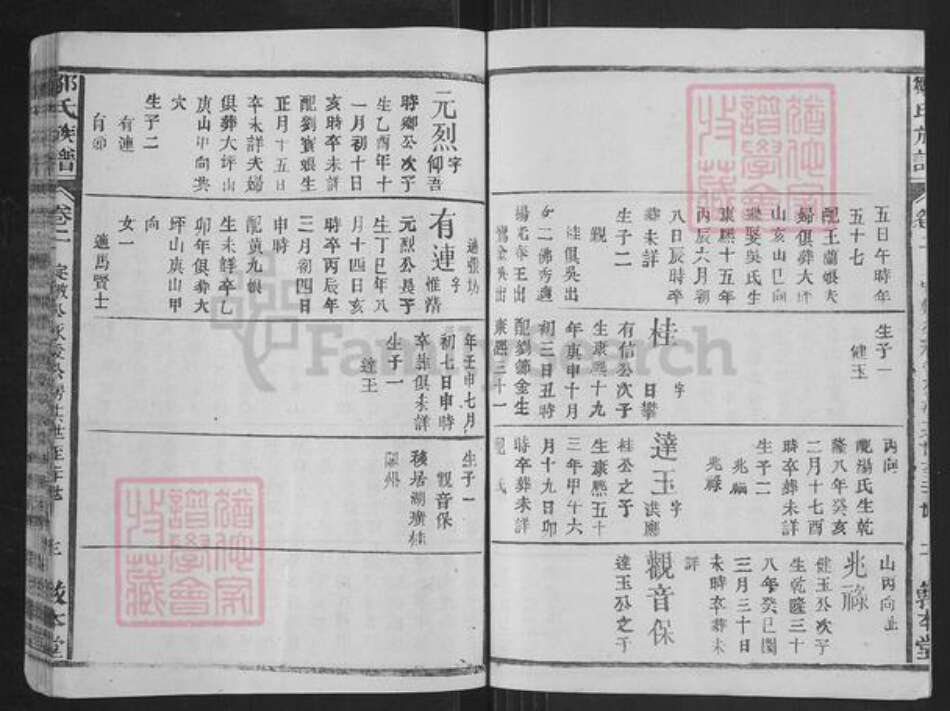 五日午時年
五十七
配王蘭娘夫
婦俱葬大坪
山亥山巳向
繼娶吳氏生
康熙十五年
丙辰六月初
八日辰時卒
葬未詳
生子二
觀
桂俱吳出
女二佛秀適
生子一
健玉
桂
字
日攀
有信公次子
生康熙十九
年庚申十月
初三日丑時
配劉節金生
康熙三十一
年壬申七月
初七日申時
卒葬俱未詳
生子一
達玉
丙向
配湯氏生乾
隆八年癸亥
二月十七酉
時卒葬未詳
生子二
兆
兆祿
達玉
字
洪應
桂公之子
生康熙五十
三年甲午六
月十九日卯
時卒葬未詳
配 氏
生子一
觀音保
移居湖廣桂
陽州
山丙向
兆祿
健玉公次子
生乾隆三十
八年癸巳閏
三月三十日
未時卒葬未
詳
觀音保
達玉公之子
敦本堂
鄒氏族譜
卷二
三
敦本堂
元烈
字
仰吾
時鄉公次子
生乙酉年十
一月初十日
亥時卒未詳
配劉寶娘生
正月十五日
卒未詳夫婦
俱葬大坪山
庚山甲向共
穴
生子二
有連
有
有連
字
惟清
元烈公長子
生丁巳年八
月十四日亥
時卒丙辰年
三月初四日
申時
配黃九娘
生未詳卒乙
卯年俱葬大
坪山庚山甲
向
女一
適馬賢士
猶他家譜學會收藏
猶他家譜學會收藏
FamilySearch